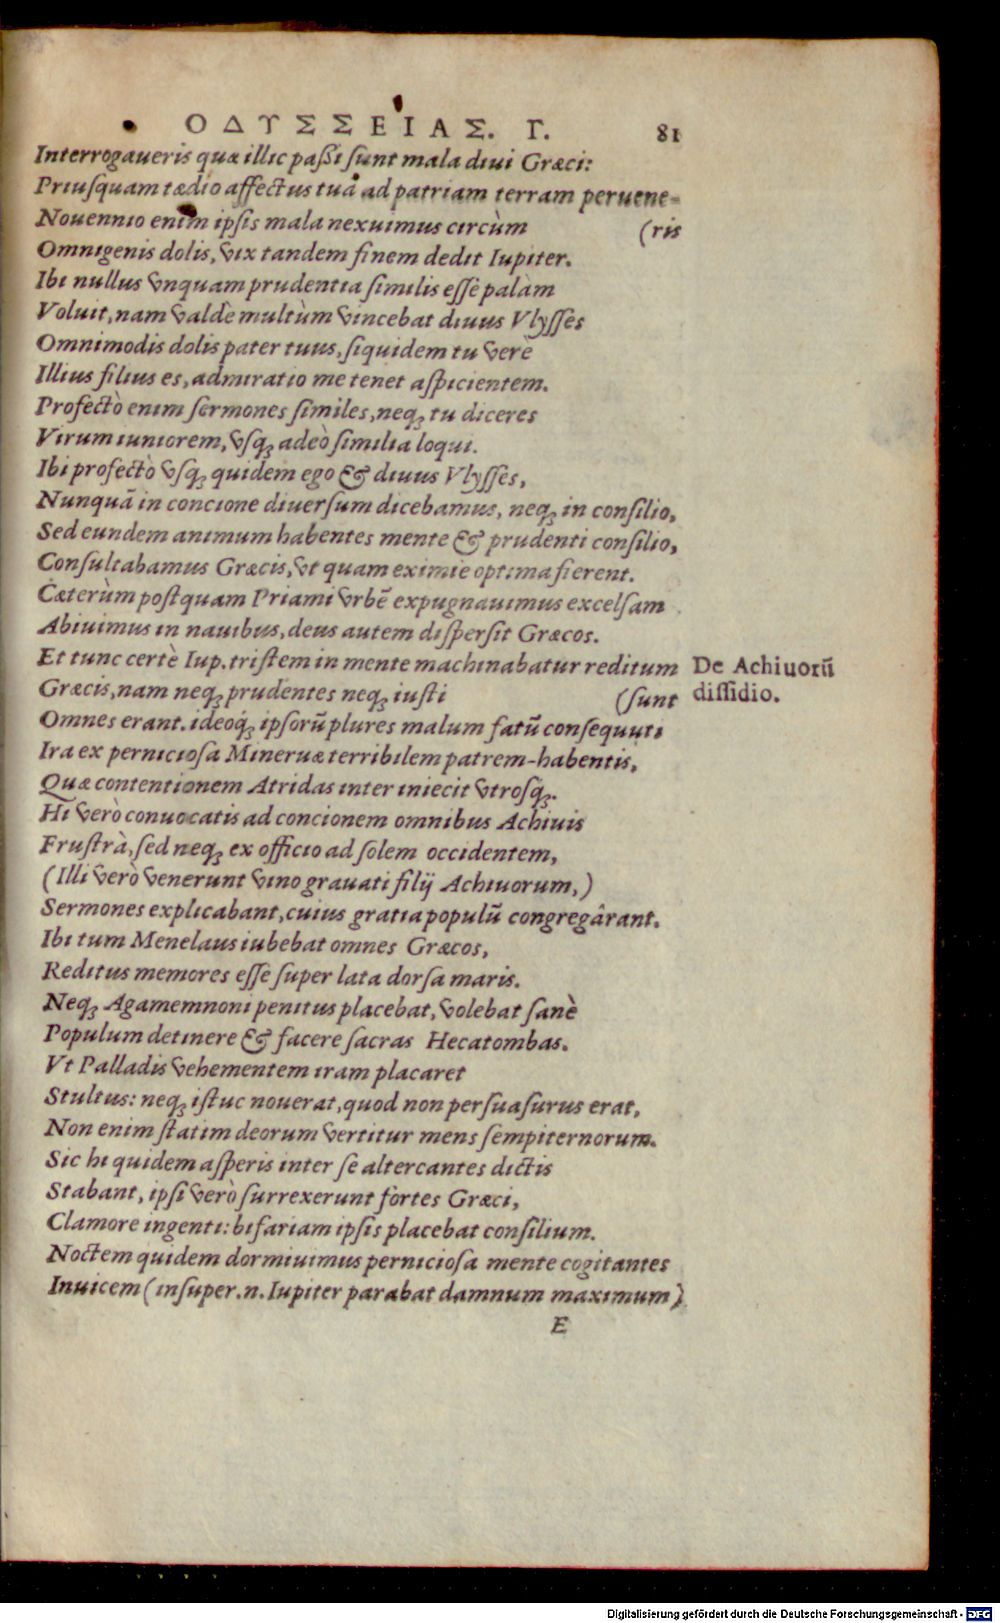 ΟΔΥΣΣΕΙΑΣ. Γ. 81
Interrogaueris quæ illic paßi sunt mala diui Græci:
Priusquam tædio affectus tuã ad patriam terram peruene=
Nouennio enim ipsis mala nexuimus circùm (ris
Omnigenis dolis, vix tandem finem dedit Iupiter.
Ibi nullus vnquam prudentia similis esse palàm
Voluit, nam valdè multùm vincebat diuus Vlysses
Omnimodis dolis pater tuus, siquidem tu verè
Illius filius es, admiratio me tenet aspicientem.
Profectò enim sermones similes, neq; tu diceres
Virum iuniorem, vsq; adeò similia loqui.
Ibi profectò vsq; quidem ego & diuus Vlysses,
Nunquã in concione diuersum dicebamus, neq; in consilio,
Sed eundem animum habentes mente & prudenti consilio,
Consultabamus Græcis, vt quam eximie optima fierent.
Cæterùm postquam Priami vrbẽ expugnauimus excelsam
Abiuimus in nauibus, deus autem dispersit Græcos.
Et tunc certè Iup. tristem in mente machinabatur reditum
De Achiuorũ
Græcis, nam neq; prudentes neq; iusti (sunt
dissidio.
Omnes erant. ideoq; ipsorũ plures malum fatũ consequuti
Ira ex perniciosa Mineruæ terribilem patrem-habentis,
Quæ contentionem Atridas inter iniecit vtrosq;.
Hi verò conuocatis ad concionem omnibus Achiuis
Frustrà, sed neq; ex officio ad solem occidentem,
(Illi verò venerunt vino grauati filij Achiuorum,)
Sermones explicabant, cuius gratia populũ congregârant.
Ibi tum Menelaus iubebat omnes Græcos,
Reditus memores esse super lata dorsa maris.
Neq; Agamemnoni penitus placebat, volebat sanè
Populum detinere & facere sacras Hecatombas.
Vt Palladis vehementem iram placaret
Stultus: neq; istuc nouerat, quod non persuasurus erat,
Non enim statim deorum vertitur mens sempiternorum.
Sic hi quidem asperis inter se altercantes dictis
Stabant, ipsi verò surrexerunt fortes Græci,
Clamore ingenti: bifariam ipsis placebat consilium.
Noctem quidem dormiuimus perniciosa mente cogitantes
Inuicem (insuper .n. Iupiter parabat damnum maximum)
E
Digitalisierung gefördert durch die Deutsche Forschungsgemeinschaft - DFG